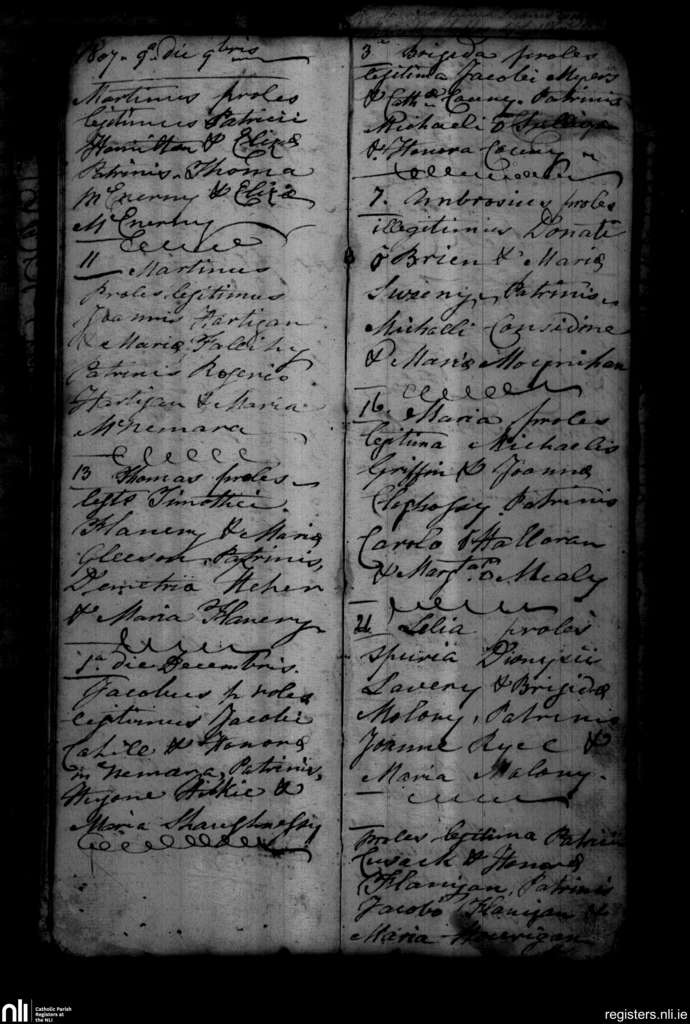 1807. 9ª die 9bris
Martinus proles
legitimus Patricii
Hamilton & Elizæ
Patrinis Thoma
McEnerny & Eliza
McEnerny
11 Martinus
proles legitimus
Joannis Hartigan
& Mariæ Falcihy
Patrinis Rogerio
Hartigan & Maria
McNemara
13 Thomas proles
legts Timothei
Flanery & Mariæ
Gleeson, Patrinis,
Demetrio Heher
& Maria Flanery
1ª die Decembris.
Jacobus proles
legitimus Jacobi
Cahill & Honoræ
McNemara, Patrinis,
Hugone Hickie &
Maria Shaughnessy
3ª Brigida proles
legitima Jacobi Myers
& Cathæ Cauny. Patrinis
Michaeli
& Honora Cauny
7. Ambrosius proles
illegitimus Donati
ó Brien & Mariæ
Sweeny, Patrinis
Michaeli Considine
& Maria Moynihan
16. Maria proles
legitima Michaelis
Griffin & Joannæ
Clophosy. Patrinis
Carolo ó Halloran
& Margta o Mealy
21 Lelia proles
spuria Dionysii
Lavery & Brigidæ
Molony, Patrinis
Joanne Ryee &
Maria Malony.
proles legitima Patricii
Cusack & Honoræ
Flanigan, Patrinis
Jacobo Flanigan &
Maria Hourigan
nli
Catholic Parish
Registers at
the NLI
registers.nli.ie